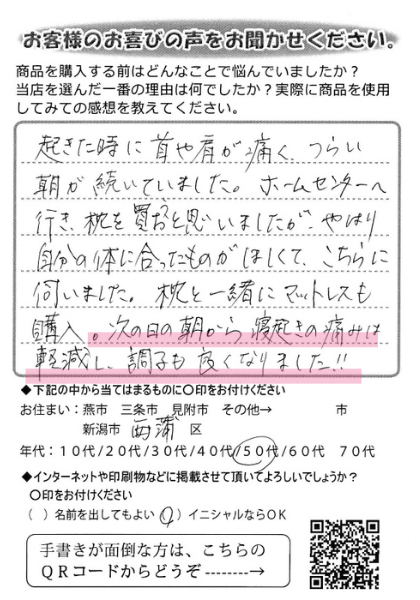 お客様のお喜びの声をお聞かせください。
商品を購入する前はどんなことで悩んでいましたか？
当店を選んだ一番の理由は何でしたか？実際に商品を使用
してみての感想を教えてください。
起きた時に首や肩が痛く、つらい
朝が続いていました。ホームセンターへ
行き、枕を買おうと思いましたが、やはり
自分の体に合ったものがほしくて、こちらに
伺いました。枕と一緒にマットレスも
購入。次の日の朝から寝起きの痛みは
軽減し、調子も良くなりました!!
◆下記の中から当てはまるものに〇印をお付けください
お住まい：燕市 三条市 見附市 その他→ 市
新潟市 西蒲 区
年代：１０代/２０代/３０代/４０代/５０代/６０代 ７０代
◆インターネットや印刷物などに掲載させて頂いてよろしいでしょうか？
〇印をお付けください
（ ）名前を出してもよい （○）イニシャルならＯＫ
手書きが面倒な方は、こちらの
ＱＲコードからどうぞ--------→